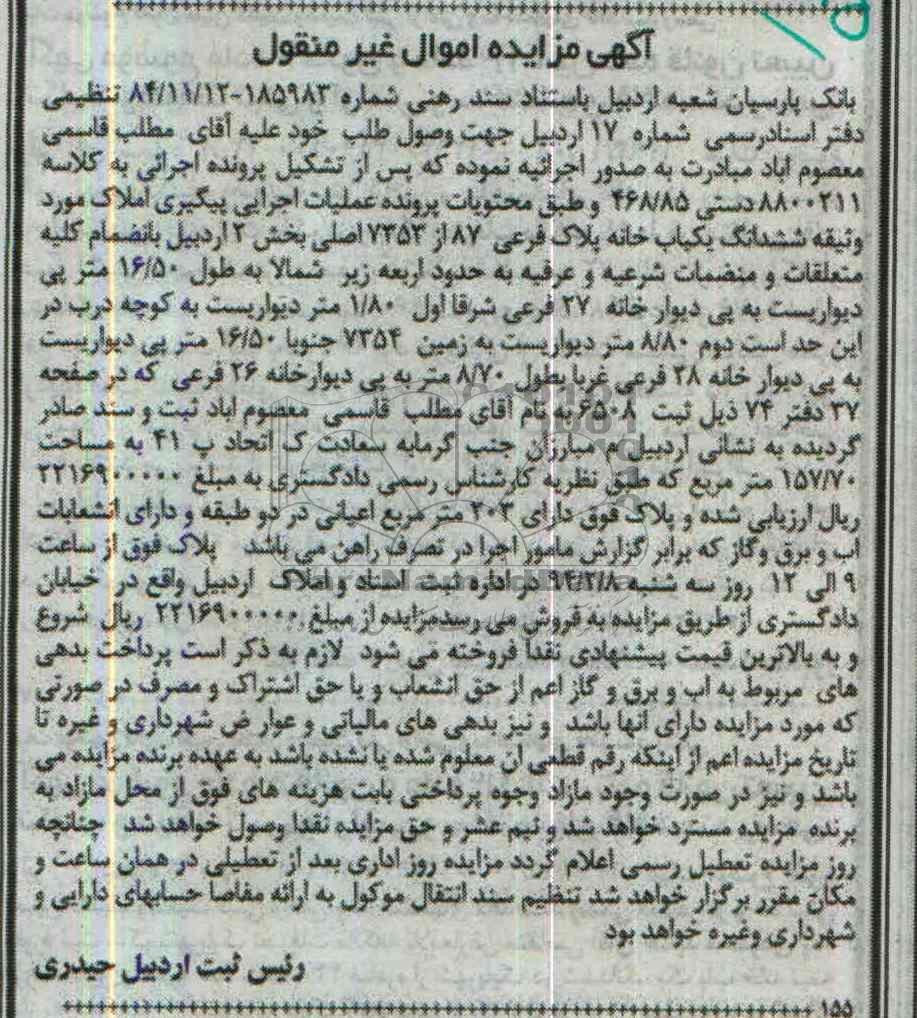 آگهی مزایده اموال غیر منقول
بانک پارسیان شعبه اردبیل باستناد سند رهنی شماره ۱۸۵۹۸۳-۸۴/۱۱/۱۲ تنظیمی
دفتر اسنادرسمی شماره ۱۷ اردبیل جهت وصول طلب خود علیه آقای مطلب قاسمی
معصوم اباد مبادرت به صدور اجرائیه نموده که پس از تشکیل پرونده اجرائی به کلاسه
۸۸۰۰۲۱۱ دستی ۴۶۸/۸۵ و طبق محتویات پرونده عملیات اجرایی پیگیری املاک مورد
وثیقه ششدانگ یکباب خانه پلاک فرعی ۸۷ از ۷۳۵۳ اصلی بخش ۲ اردبیل بانضمام کلیه
متعلقات و منضمات شرعیه و عرفیه به حدود اربعه زیر شمالا به طول ۱۶/۵۰ متر پی
دیواریست به پی دیوار خانه ۲۷ فرعی شرقا اول ۱/۸۰ متر دیواریست به کوچه درب در
این حد است دوم ۸/۸۰ متر دیواریست به زمین ۷۳۵۴ جنوبا ۱۶/۵۰ متر پی دیواریست
به پی دیوار خانه ۲۸ فرعی غربا بطول ۸/۷۰ متر به پی دیوارخانه ۲۶ فرعی که در صفحه
۳۷ دفتر ۷۴ ذیل ثبت ۶۵۰۸ به نام آقای مطلب قاسمی معصوم اباد ثبت و سند صادر
گردیده به نشانی اردبیل م مبارزان جنب گرمابه سعادت ک اتحاد پ ۴۱ به مساحت
۱۵۷/۷۰ متر مربع که طبق نظریه کارشناس رسمی دادگستری به مبلغ ۲۲۱۶۹۰۰۰۰۰
ریال ارزیابی شده و پلاک فوق دارای ۲۰۳ متر مربع اعیانی در دو طبقه و دارای انشعابات
اب و برق وگاز که برابر گزارش مامور اجرا در تصرف راهن می باشد پلاک فوق از ساعت
۹ الی ۱۲ روز سه شنبه ۹۴/۲/۸ در اداره ثبت اسناد و املاک اردبیل واقع در خیابان
دادگستری از طریق مزایده به فروش می رسدمزایده از مبلغ ۲۲۱۶۹۰۰۰۰۰ ریال شروع
و به بالاترین قیمت پیشنهادی نقدا فروخته می شود لازم به ذکر است پرداخت بدهی
های مربوط به اب و برق و گاز اعم از حق انشعاب و یا حق اشتراک و مصرف در صورتی
که مورد مزایده دارای انها باشد و نیز بدهی های مالیاتی و عوار ض شهرداری و غیره تا
تاریخ مزایده اعم از اینکه رقم قطعی ان معلوم شده یا نشده باشد به عهده برنده مزایده می
باشد و نیز در صورت وجود مازاد وجوه پرداختی بابت هزینه های فوق از محل مازاد به
برنده مزایده مسترد خواهد شد و نیم عشر و حق مزایده نقدا وصول خواهد شد چنانچه
روز مزایده تعطیل رسمی اعلام گردد مزایده روز اداری بعد از تعطیلی در همان ساعت و
مکان مقرر برگزار خواهد شد تنظیم سند انتقال موکول به ارائه مفاصا حسابهای دارایی و
شهرداری وغیره خواهد بود
رئیس ثبت اردبیل حیدری
۱۵۵